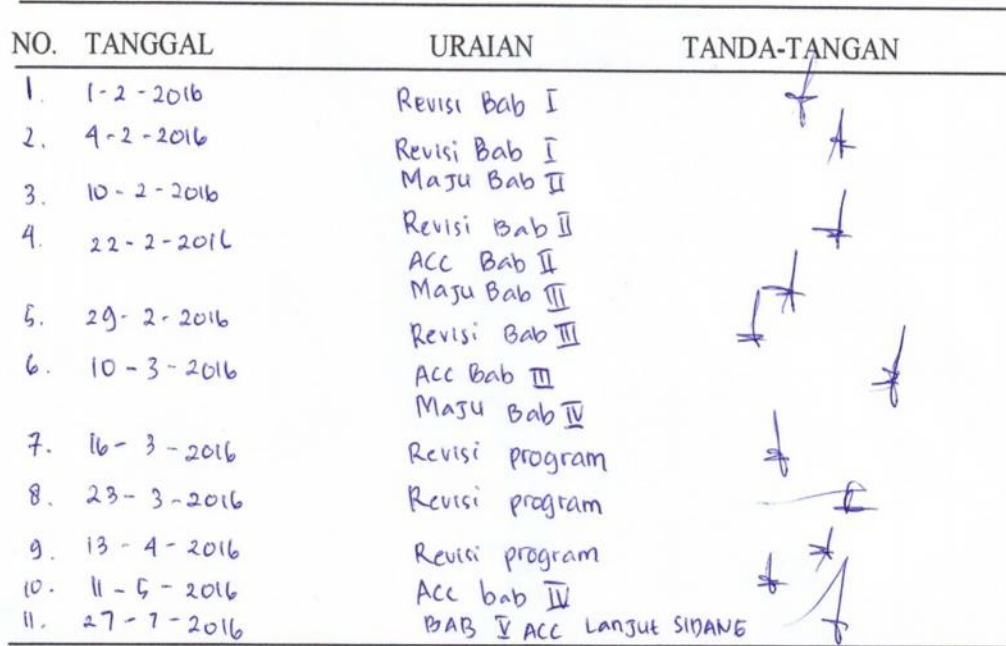 NO. TANGGAL URAIAN TANDA-TANGAN
1. 1-2-2016 Revisi Bab I
2. 4-2-2016 Revisi Bab I
Maju Bab II
3. 10-2-2016
Revisi Bab II
4. 22-2-2016
ACC Bab II
Maju Bab III
5. 29-2-2016 Revisi Bab III
6. 10-3-2016 Acc Bab III
Maju Bab IV
7. 16-3-2016 Revisi program
8. 23-3-2016 Revisi program
9. 13-4-2016 Revisi program
10. 11-5-2016 Acc bab IV
11. 27-7-2016 BAB V ACC Lanjut SIDANG